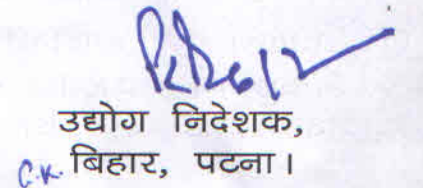 उद्योग निदेशक,
C.K. बिहार, पटना।